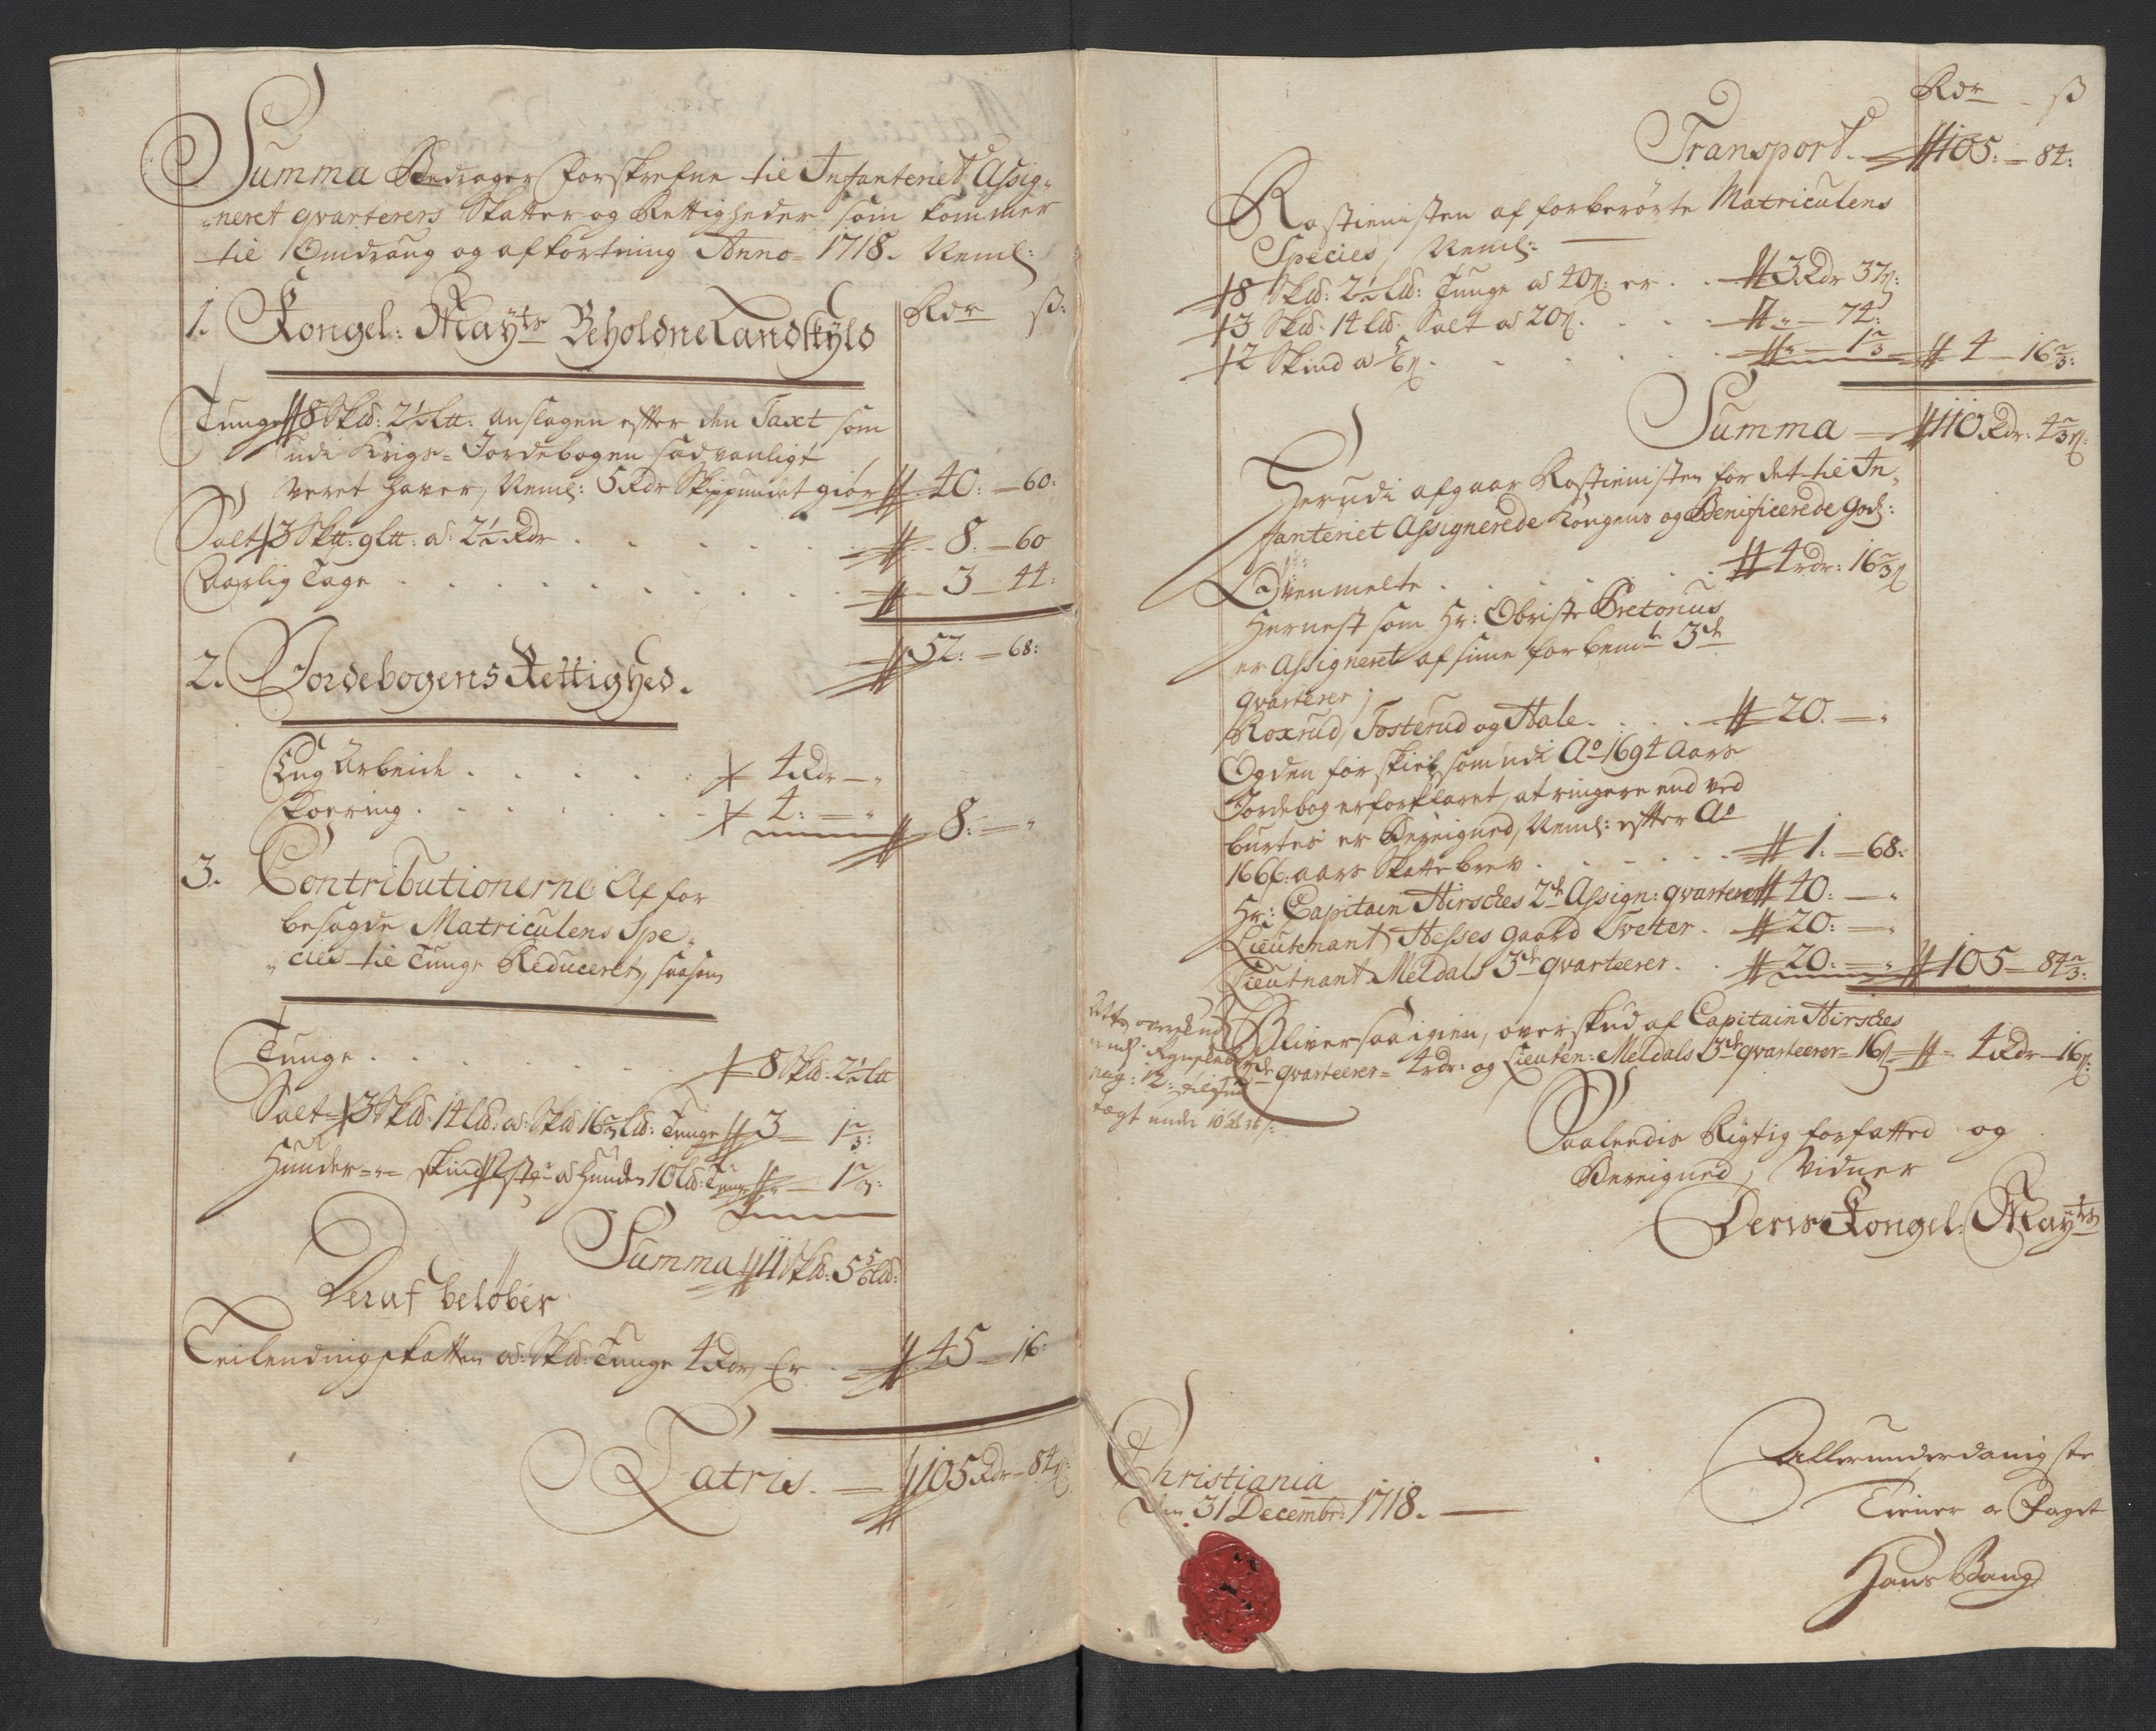 Summa Bedrager forskrefne til Infanteriet Assig-
neret qvarterers Skatter og Rettigheder som kommer
til Omdraug og afkortning Anno 1718. Neml:
1. Kongel: Mayts Beholdne Landskyld
Rdr ß:
Tunge 8 Skd: 2½ Ltt: anslagen efter den Taxt som
udi Krigs-Jordebogen sædvanligt
veret haver, Neml: 5 Rdr Skippundet giør 40: – 60:
Salt 3 Sktt: 9 Ltt: ad: 2½ Rdr . . . . 8. – 60
Aarlig Tage . . . . . . 3 – 44:
52: – 68:
2. Jordebogens Rettighed.
Eng Arbeide . . . . . 4 Rdr – „
Koering . . . . . . 4: – „ 8: – „
3. Contributionerne Af for
besagde Matriculens Spe„
„cies til Tunge Reduceret, saasom
Tunge . . . . . . 8 Skd: 2½ Ltt
Salt 3 Skd: 14 Ld: ad: Skd 16⅔ Ld: Tunge 3 – 1⅔:
Huuder – „ – Skind 2 ad Huuden 10 Ld: Tunge „ – 1⅔:
Summa 11 Skd: 5⅚ Ld:
Deraf beløber
Leilendingskatten ad: Skd: Tunge 4 Rdr, Er . 45 – 16:
Latris. – 105 Rdr – 84 ß:
Rdr – ß
Transport. – 105: – 84:
Rostienisten af forberørte Matriculens
Species, Neml: –
8 Skd: 2½ Ld: Tunge ad 40 ß: er . . 3 Rdr 37 ß:
3 Skd: 14 Ld: Salt ad 20 ß: . . . „ – 74:
2 Skind ad ⅚ ß. . . . . „ – 1⅔ 4 – 16⅔:
Summa – 110 Rdr: 4⅔ ß:
Herudi afgaar Rostienisten for det til In„
fanteriet Assignerede Kongens og Benificerede Gods:
Ovenmelte . . . . . . 4 rdr: 16⅔ ß
Hernest som Hr: Obriste Pretorius
er Assigneret af sine forbemte 3de
qvarterer,
Roxrud, Fosterud og Hale . . . . 20. – „
Og den forskiel som udi Ao 1694 Aars
Jordebog er forklaret, at ringere end ved
burtes er Bereigned, Neml: efter Ao
1666: aars Skattebrev . . . . . 1: – 68:
Hr: Capitain Hirsches 2de Assign: qvarterer 40: – „
Lieutenant Hesses gaard Tveter . 20: – „
Lieutnant Meldals 3de qvarteerer . . 20: – „ 105 – 84⅔:
Bliver saa igien, overskud af Capitain Hirsches
2de qvarteerer – 4 rdr: og Lieuten: Meldals 3de qvarteerer – 16 ß – 4 Rdr – 16 ß:
Saaledis Rigtig forfatted og
Bereigned, Vidner
Deris Kongel. Mayts
Christiania
den 31 Decembr: 1718. –
Allerunderdanigste
Tiener og Foget
Hans Bang